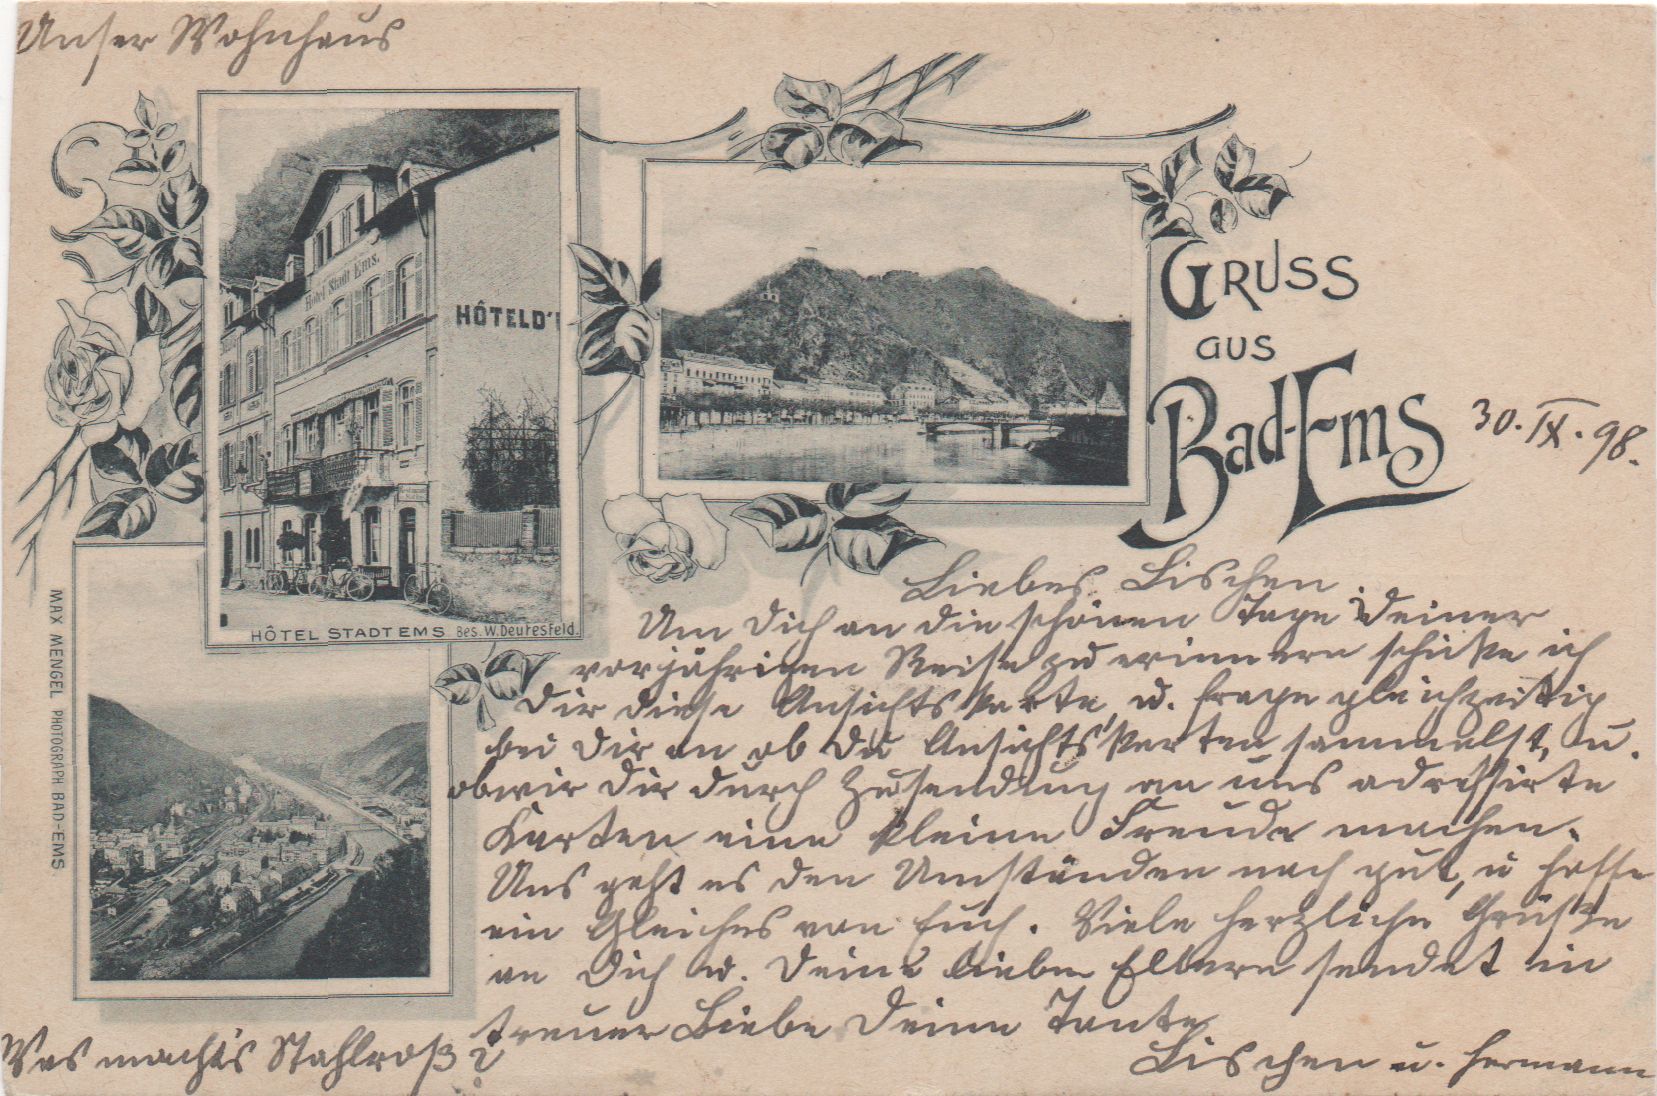 Unser Wohnhaus
Hotel Stadt Ems.
HÔTEL D'
HÔTEL STADT EMS Bes. W. Deuresfeld.
GRUSS
aus
Bad-Ems
30. IX. 98.
MAX MENGEL PHOTOGRAPH BAD-EMS
Liebes Lischen.
Um Dich an die schönen Tage Deiner
vorjährigen Reise zu erinnern schicke ich
Dir diese Ansichtskarte, u. frage gleichzeitig
bei Dir an ob Du Ansichtskarten sammelst, u.
ob wir Dir durch Zusendung an uns adressirte
Karten eine kleine Freude machen.
Uns geht es den Umständen nach gut, u hoffe
ein Gleiches von Euch. Viele herzliche Grüße
an Dich u. Deine lieben Eltern sendet in
treuer Liebe Deine Tante
Lischen u. Hermann
Was macht's Stahlroß?